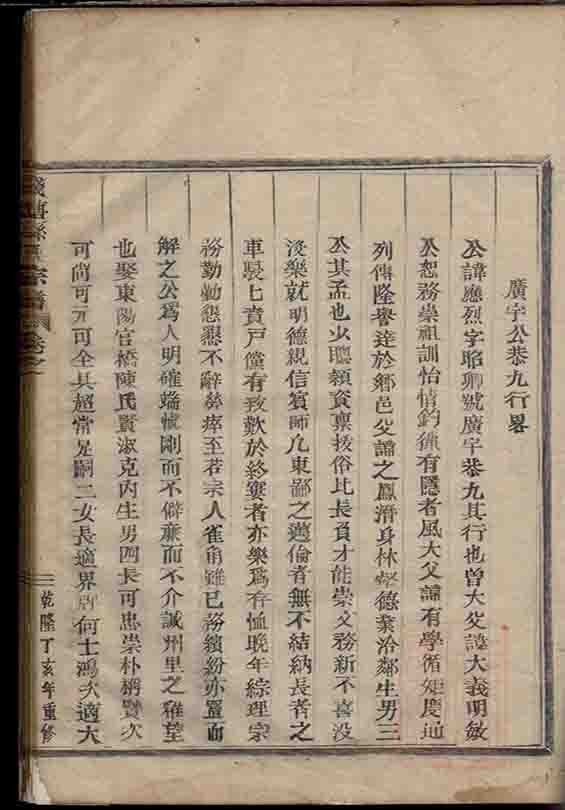 廣宇公恭九行畧
公諱應烈字昭卿號廣宇恭九其行也曾大父諱大義明敏
公恕務崇祖訓怡情釣弋有隱者風大父諱有學循矩度迪
列傳隆譽達於鄉邑父諱之鳳潛身林壑德業洽鄰生男三
公其孟也少聰穎資稟拔俗比長負才能崇文務新不喜沒
沒樂就明德親信賓師凡東鄙之邁倫者無不結納長者之
車晨七賁戶儻有致歎於終窶者亦樂爲存恤晚年綜理宗
務勤勤懇懇不辭勞瘁至若宗人雀角雖已紛繽紛亦置而
解之公爲人明確端慎剛而不僻廉而不介誠州里之雅望
也娶東陽官橋陳氏賢淑克內生男四長可忠崇朴稱賢次
可尚可元可全具超常是嗣二女長適界 何士鴻次適大
宗譜 卷之
乾隆丁亥年重修